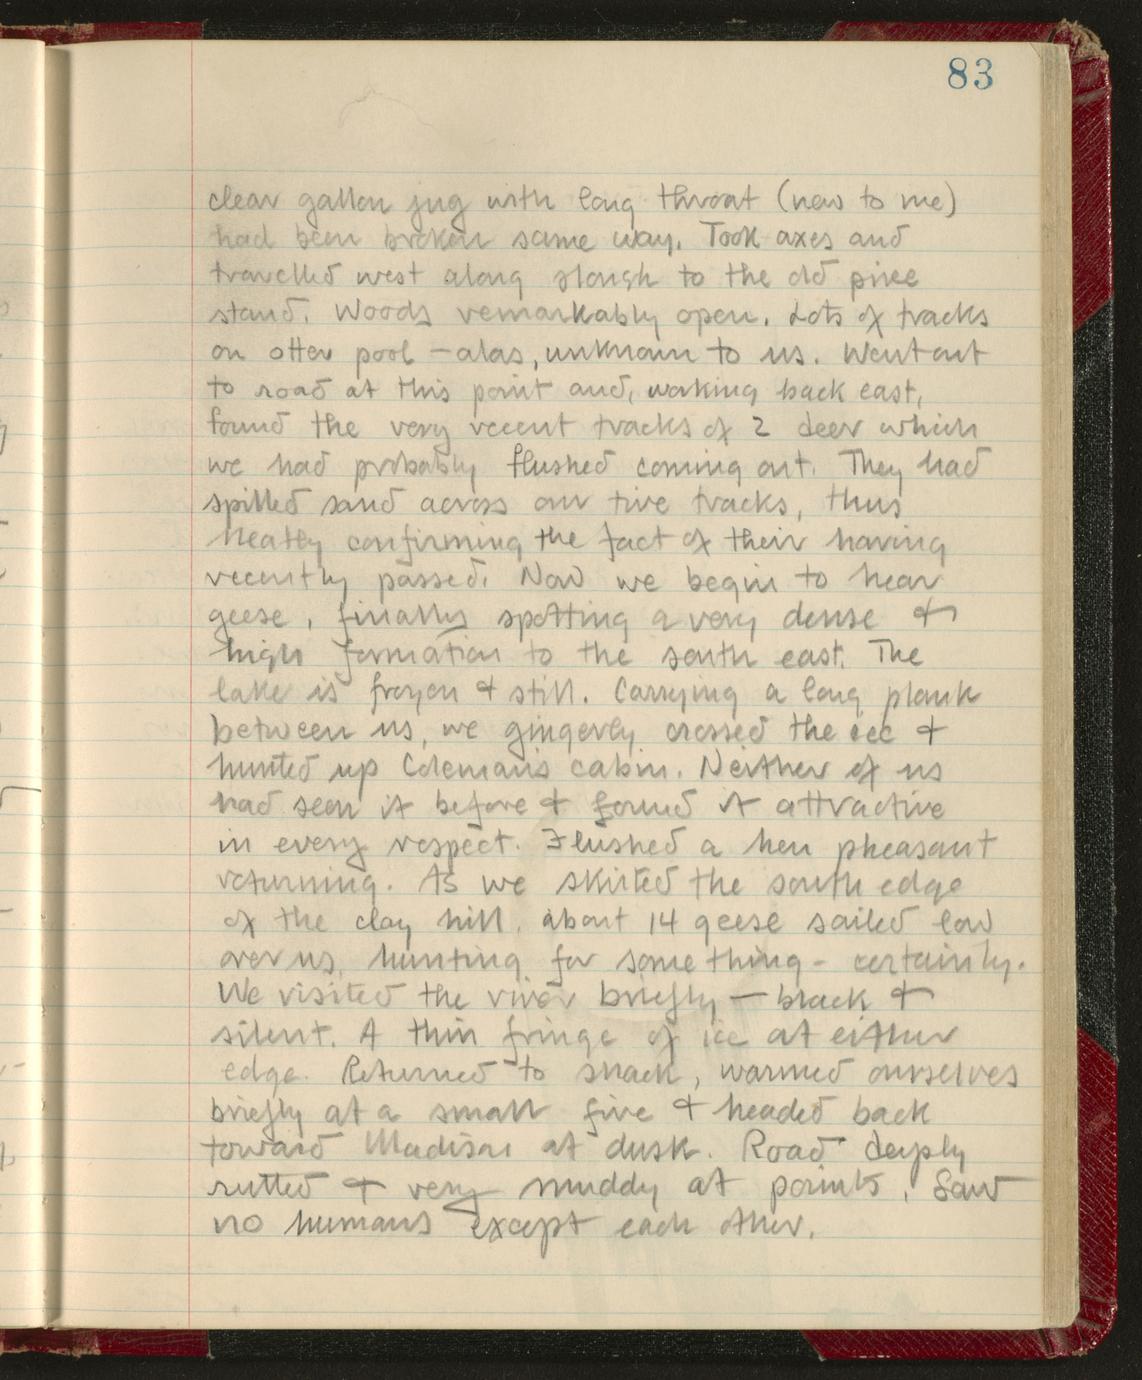 83
clear gallon jug with long throat (new to me)
had been broken same way. Took axes and
travelled west along slough to the old pine
stand. Woods remarkably open. Lots of tracks
on otter pool – alas, unknown to us. Went out
to road at this point and, working back east,
found the very recent tracks of 2 deer which
we had probably flushed coming out. They had
spilled sand across our tire tracks, thus
neatly confirming the fact of their having
recently passed. Now we begin to hear
geese, finally spotting a very dense &
high formation to the south east. The
lake is frozen & still. Carrying a long plank
between us, we gingerly crossed the ice &
hunted up Coleman's cabin. Neither of us
had seen it before & found it attractive
in every respect. Flushed a hen pheasant
returning. As we skirted the south edge
of the clay hill, about 14 geese sailed low
over us, hunting for something – certainly.
We visited the river briefly – black &
silent. A thin fringe of ice at either
edge. Returned to shack, warmed ourselves
briefly at a small fire & headed back
toward Madison at dusk. Road deeply
rutted & very muddy at points. Saw
no humans except each other.